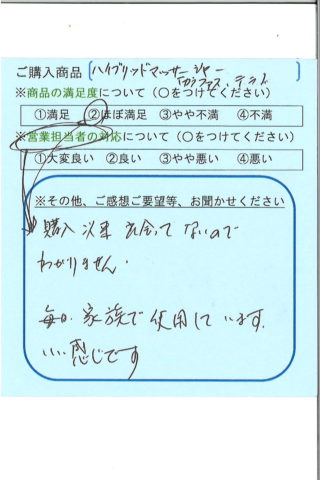 ご購入商品 ハイブリッドマッサージャー
カラファス、テラズ
※商品の満足度について(〇をつけてください)
①満足 ②ほぼ満足 ③やや不満 ④不満
※営業担当者の対応について(〇をつけてください)
①大変良い ②良い ③やや悪い ④悪い
※その他、ご感想ご要望等、お聞かせください
購入以来 お会って ないので
わかりません.
毎日.家族で使用しています.
いい感じです